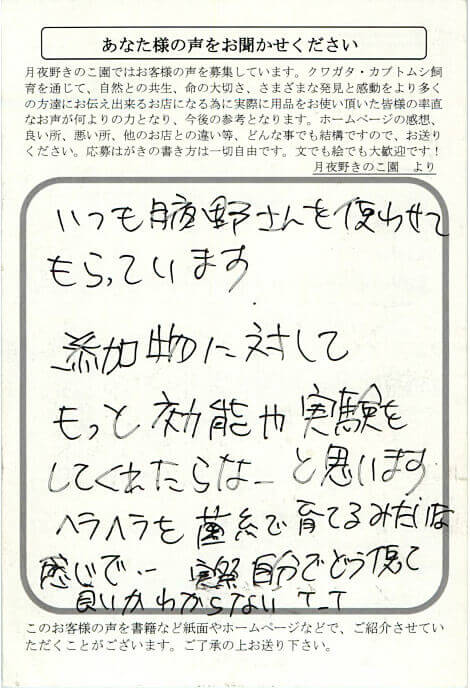 あなた様の声をお聞かせください
月夜野きのこ園ではお客様の声を募集しています。クワガタ・カブトムシ飼
育を通じて、自然との共生、命の大切さ、さまざまな発見と感動をより多く
の方達にお伝え出来るお店になる為に実際に用品をお使い頂いた皆様の率直
なお声が何よりの力となり、今後の参考となります。ホームページの感想、
良い所、悪い所、他のお店との違い等、どんな事でも結構ですので、お送り
ください。応募はがきの書き方は一切自由です。文でも絵でも大歓迎です！
月夜野きのこ園　より
いつも月夜野さんを使わせて
もらっています
添加物に対して
もっと効能や実験を
してくれたらなーと思います
ヘラヘラを菌糸で育てるみたいな
感じで… 実際自分でどう使って
良いかわからない T_T
このお客様の声を書籍など紙面やホームページなどで、ご紹介させてい
ただくことがございます。ご了承の上お送り下さい。